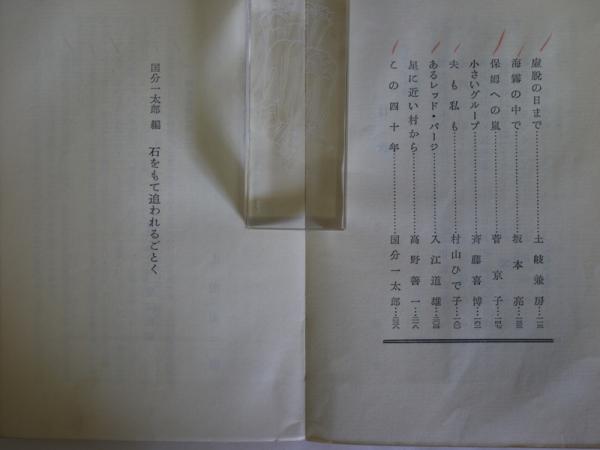 虚脱の日まで……土岐兼房
海霧の中で……坂本亮
保姆への嵐……菅京子
小さいグループ……斉藤喜博
夫も私も……村山ひで子
あるレッド・パージ……入江道雄
星に近い村から……高野善一
この四十年……国分一太郎
国分一太郎 編 石をもて追われるごとく